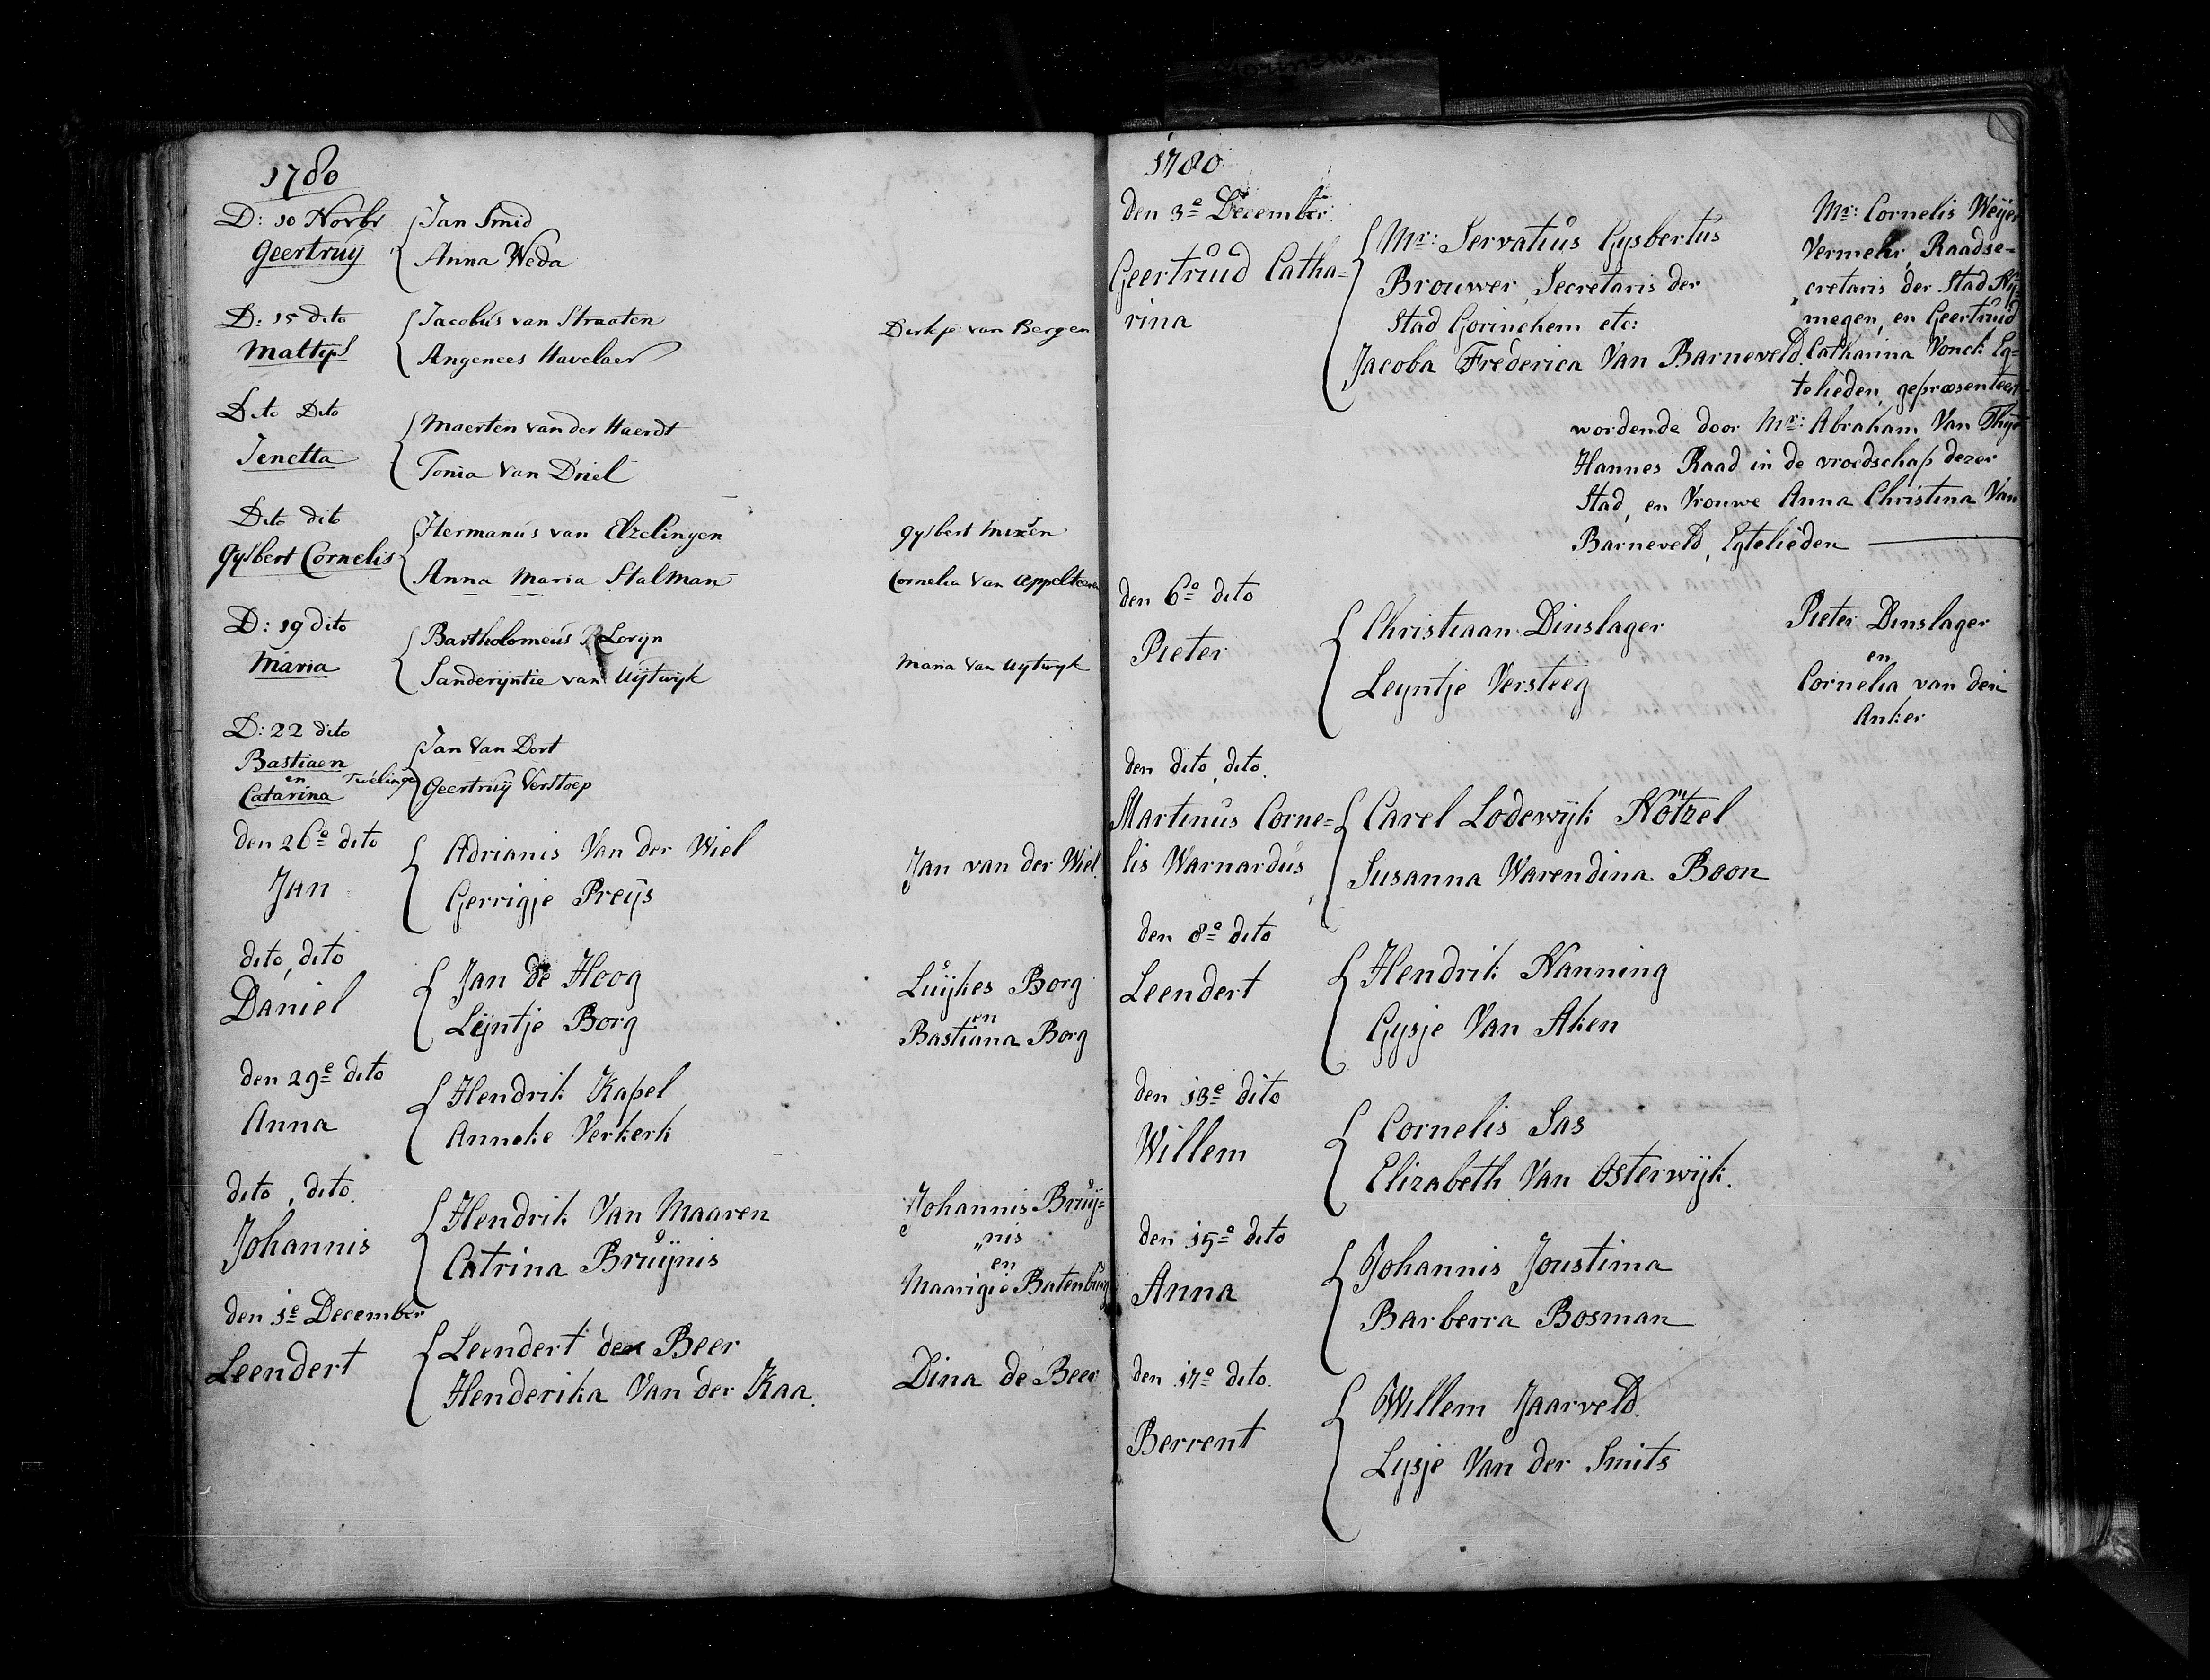 1780
D: 10 Novbr
Geertruy
Jan Smid
Anna Weda
D: 15 dito
Mattys
Jacobus van Straaten
Angenees Havelaer
Dirkje van Bergen
Dito Dito
Jenetta
Maerten van der Haerdt
Tonia Van Driel
Dito dito
Gysbert Cornelis
Hermanus van Elzelingen
Anna Maria Stalman
gysbert
Cornelia Van Appelteeren
D: 19 dito
Maria
Bartholomeus Loryn
Sanderyntie van Uijtwyk
Maria Van Uytwyk
D: 22 dito
Bastiaen
en
Catarina
Twelinge
Jan Van Dort
Geertruij Verstoep
den 26e dito
Jan
Adrianis Van der Wiel
Gerrigje Preijs
Jan van der Wiel
dito, dito
Daniel
Jan de Hoog
Lijntje Borg
Luijkes Borg
en
Bastiana Borg
den 29e dito
Anna
Hendrik Kapel
Anneke Verkerk
dito, dito
Johannis
Hendrik Van Maaren
Catrina Bruijnis
Johannis Bruij=
„nis
en
Maarigie Batenburg
den 1e December
Leendert
Leendert den Beer
Henderika Van der Kaa.
Dina de Beer
1780
den 3e December
Geertruid Catha=
rina
Mr: Servatius Gysbertus
Brouwer, Secretaris der
Stad Gorinchem etc:
Jacoba Frederica Van Barneveld.
Mr: Cornelis Weijer
Vermehr, Raadse=
„cretaris der Stad Ny=
megen, en Geertruid
Catharina Vonck Eg=
telieden, gepræsenteert
wordende door Mr: Abraham Van Thye
Hannes Raad in de vroedschap dezer
Stad, en Vrouwe Anna Christina Van
Barneveld, Egtelieden
den 6e dito
Pieter
Christiaan Dinslager
Leyntje Versteeg
Pieter Dinslager
en
Cornelia van den
Anker
den dito, dito.
Martinus Corne=
lis Warnardus
Carel Lodewijk Nötzel
Susanna Warendina Boon
den 8e dito
Leendert
Hendrik Nanning
Gysje Van Aken
den 13e dito
Willem
Cornelis Sas
Elizabeth Van Osterwijk.
den 15e dito
Anna
Johannis Joustima
Barberra Bosman
den 17e dito.
Berrent
Willem Jaarveld.
Lysje Van der Smits